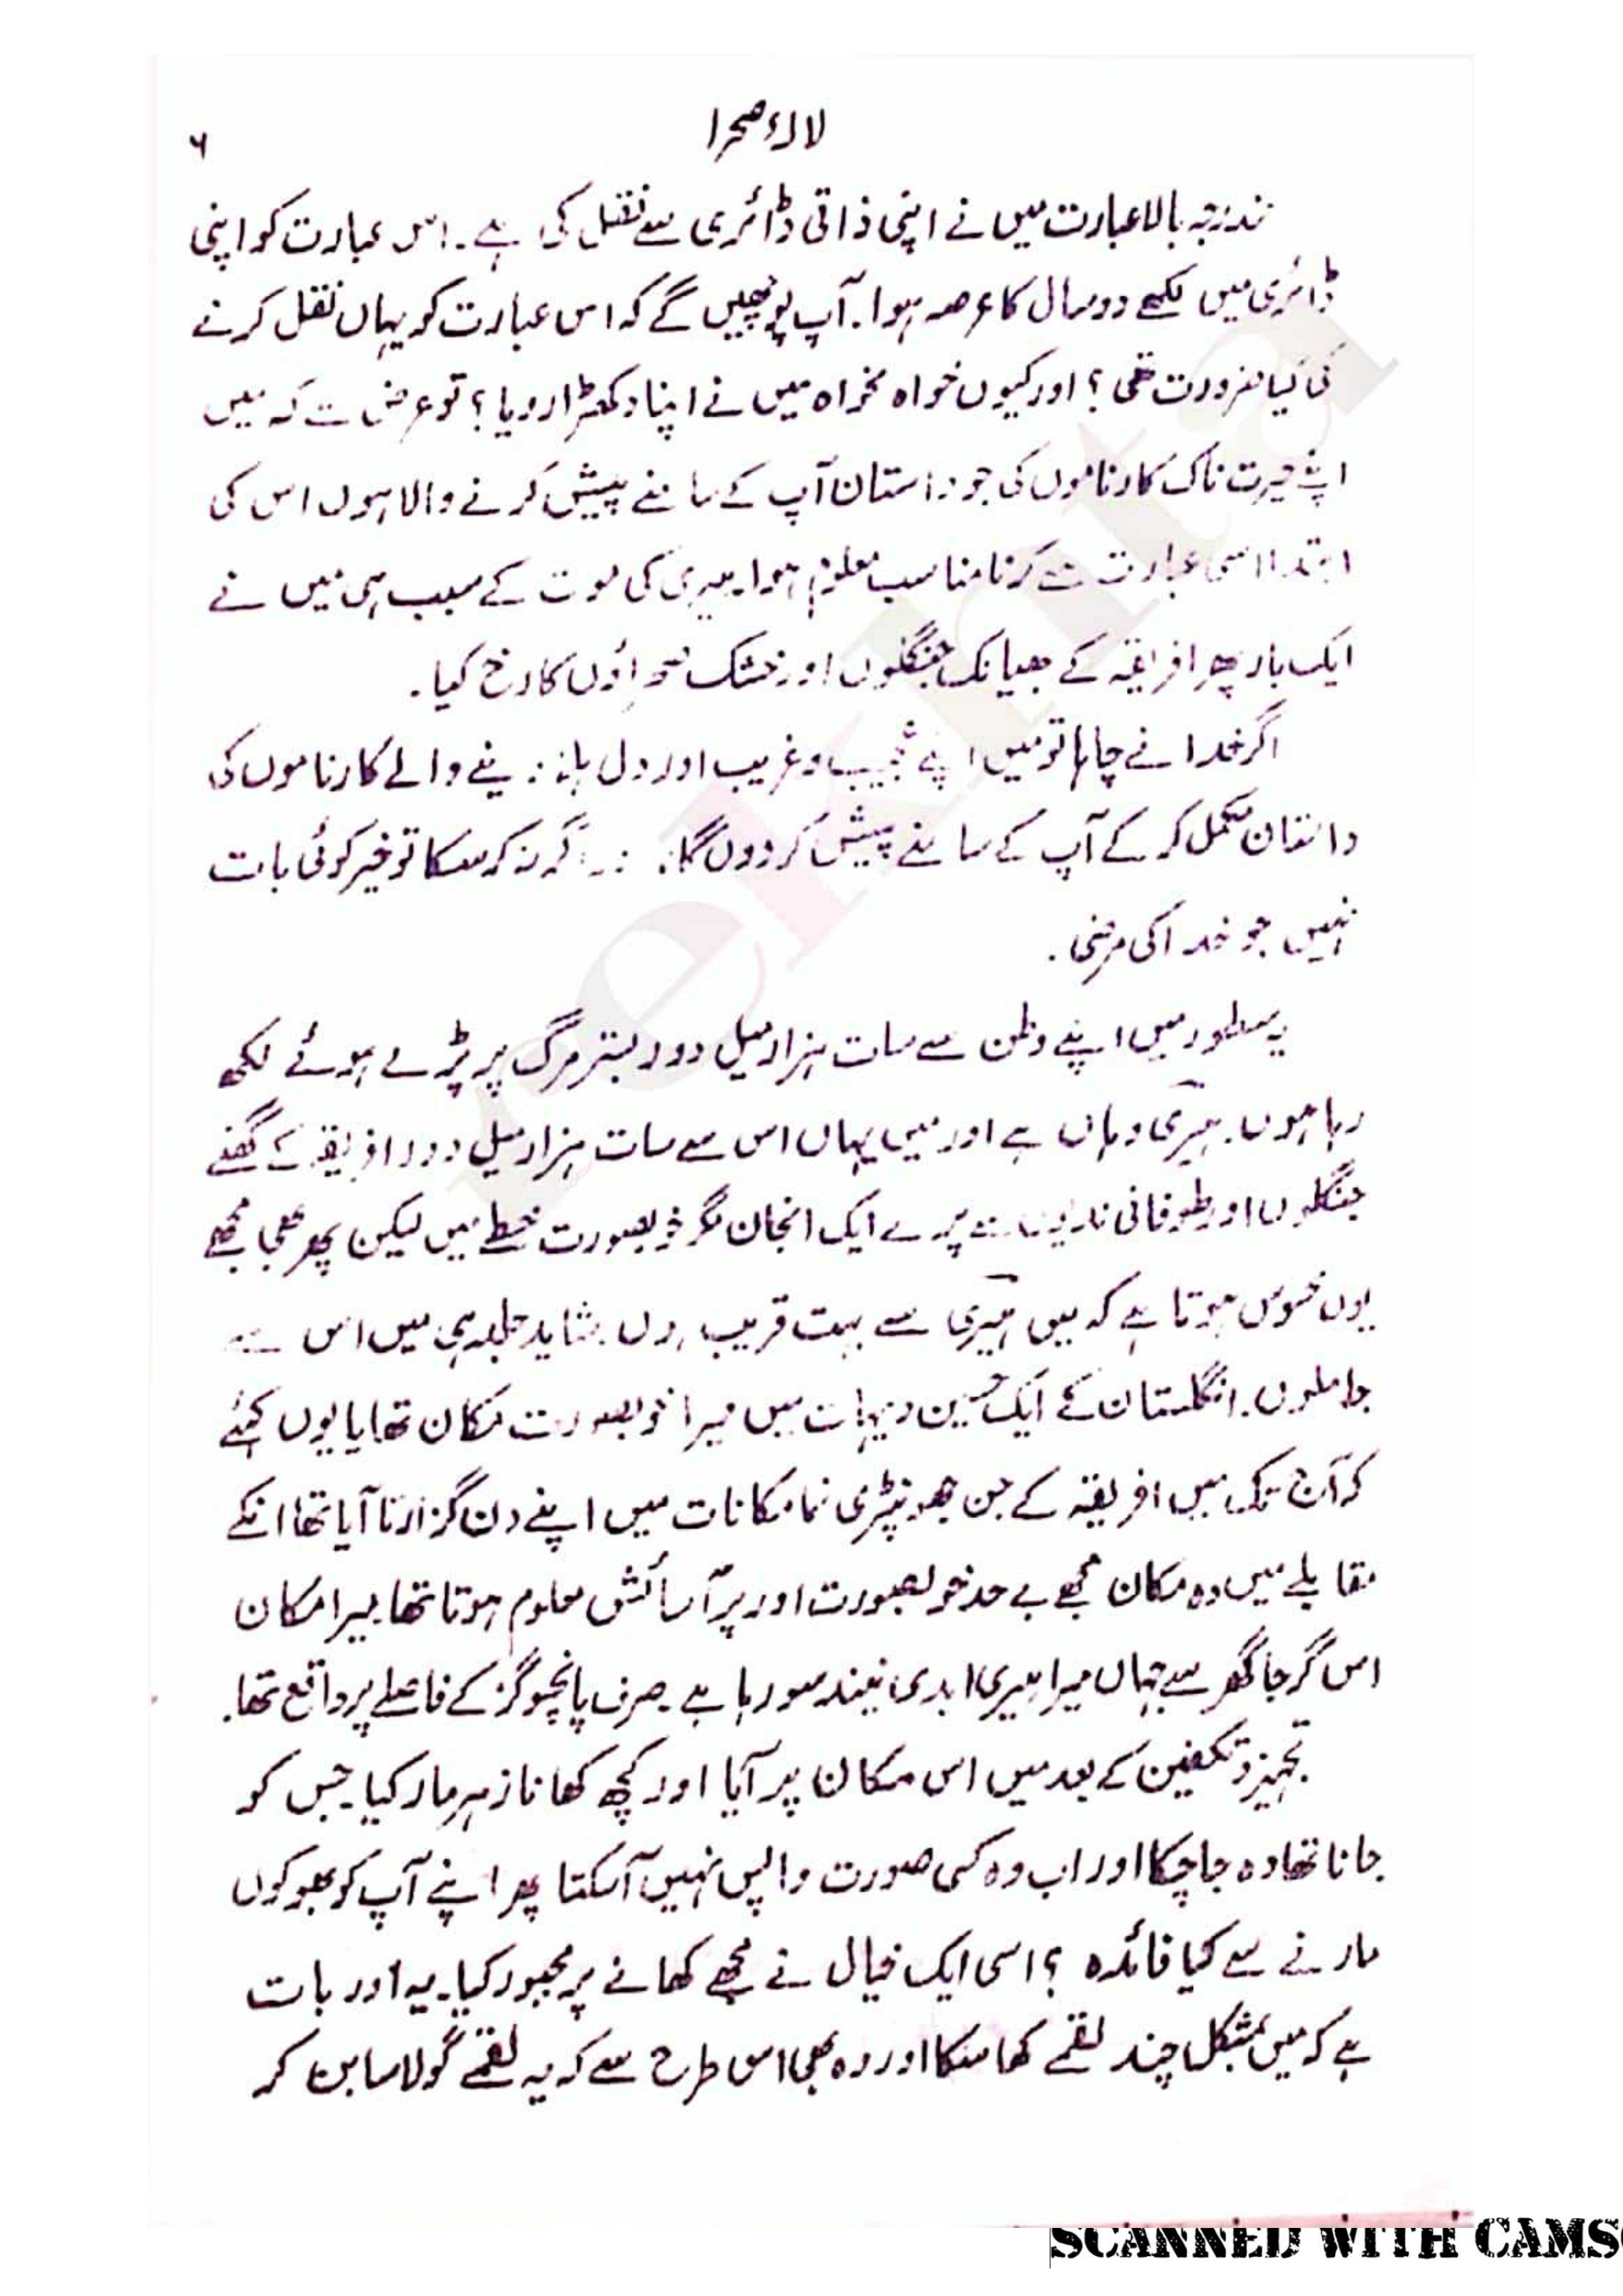 لالۂ صحرا
۶
مندرجہ بالا عبارت میں نے اپنی ذاتی ڈائری سے نقل کی ہے۔ اس عبارت کو اپنی
ڈائری میں لکھے دو سال کا عرصہ ہوا۔ آپ پوچھیں گے کہ اس عبارت کو یہاں نقل کرنے
کی کیا ضرورت تھی؟ اور کیوں خواہ مخواہ میں نے اپنا دکھڑا رویا؟ تو عرض ہے کہ میں
اپنے حیرت ناک کارناموں کی جو داستان آپ کے سامنے پیش کرنے والا ہوں اس کی
ابتدا اسی عبارت سے کرنا مناسب معلوم ہوا۔ ہیری کی موت کے سبب ہی میں نے
ایک بار پھر افریقہ کے بھیانک جنگلوں اور خشک صحراؤں کا رخ کیا۔
اگر خدا نے چاہا تو میں اپنے عجیب و غریب اور دل ہلا دینے والے کارناموں کی
داستان مکمل کر کے آپ کے سامنے پیش کردوں گا۔ اگر نہ کرسکا تو خیر کوئی بات
نہیں جو خدا کی مرضی۔
یہ سطور میں اپنے وطن سے سات ہزار میل دور بستر مرگ پر پڑے ہوئے لکھ
رہا ہوں۔ ہیری وہاں ہے اور میں یہاں اس سے سات ہزار میل دور افریقہ کے گھنے
جنگلوں اور طوفانی ندیوں سے پرے ایک انجان مگر خوبصورت خطے میں لیکن پھر بھی مجھے
یوں محسوس ہوتا ہے کہ میں ہیری سے بہت قریب ہوں۔ شاید جلد ہی میں اس سے
جا ملوں۔ انگلستان کے ایک حسین دیہات میں میرا خوبصورت مکان تھا یا یوں کہئے
کہ آج تک میں افریقہ کے جن جھونپڑی نما مکانات میں اپنے دن گزارتا آیا تھا انکے
مقابلے میں وہ مکان مجھے بے حد خوبصورت اور پرآسائش معلوم ہوتا تھا۔ میرا مکان
اس گرجا گھر سے جہاں میرا ہیری ابدی نیند سو رہا ہے۔ صرف پانچو گز کے فاصلے پر واقع تھا۔
تجہیز و تکفین کے بعد میں اس مکان پر آیا اور کچھ کھانا زہر مار کیا۔ جس کو
جانا تھا وہ جا چکا اور اب وہ کسی صورت واپس نہیں آسکتا پھر اپنے آپ کو بھوکوں
مارنے سے کیا فائدہ؟ اسی ایک خیال نے مجھے کھانے پر مجبور کیا۔ یہ اور بات
ہے کہ میں بمشکل چند لقمے کھا سکا اور وہ بھی اس طرح سے کہ یہ لقمے گولا سا بن کر
SCANNED WITH CAMS